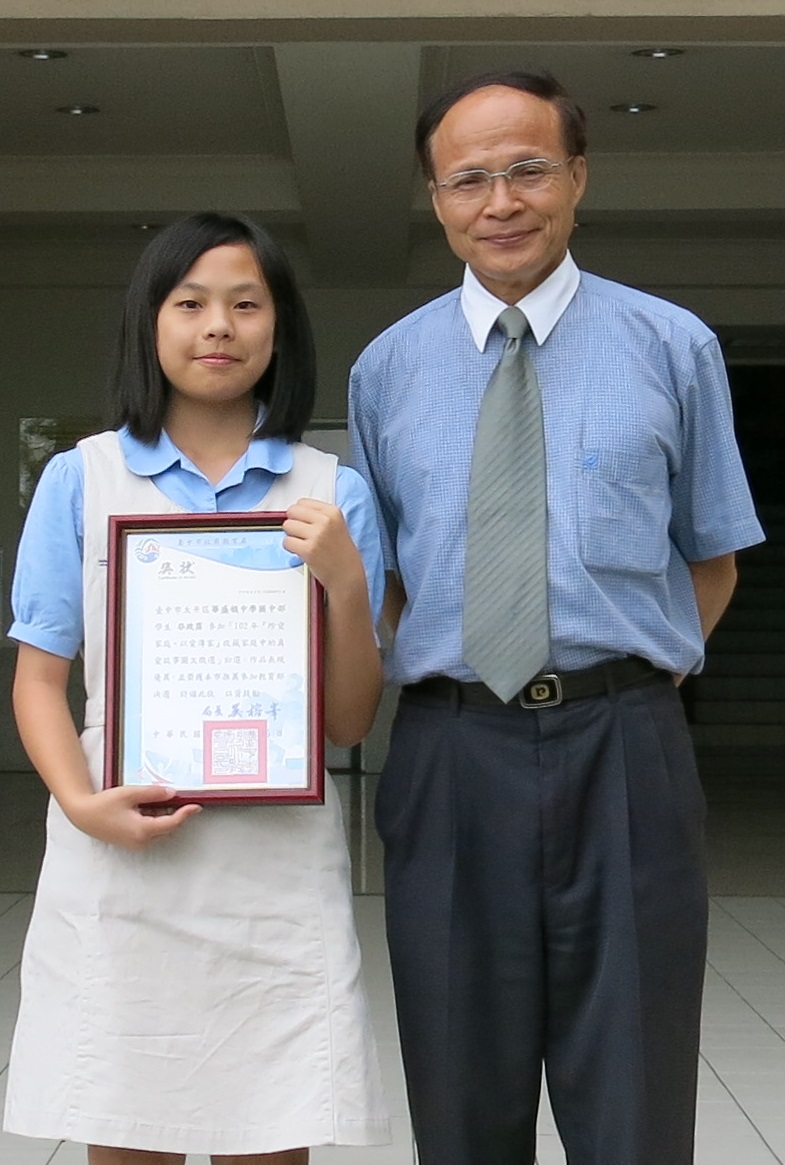 臺中市政府教育局
獎狀
臺中市太平區華盛頓中學國中部
學生 參加「102年『珍愛
家庭，以愛傳家』收藏家庭中的真
愛故事圖文徵選」初選，作品表現
優異，並獲選本市推薦參加教育部
決選 特頒此狀 以資鼓勵
局長 吳榕峯
中華民國